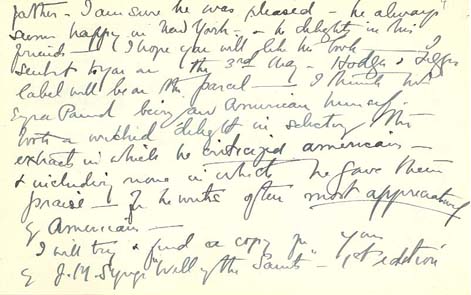 father – I am sure he was pleased – he always
seems happy in New York – & he delights in his
friends – I hope you will like the book – I
sent it to you on the 3rd May – Hodges & Figgis
label will be on the parcel – I think that
Ezra Pound being an American himself
took a wicked delight in selecting the
extracts in which he criticized americans –
& including none in which he gave them
praise – for he writes often most appreciatively
of Americans –
I will try & find a copy for you
of J. M. Synge "Well of the Saints" – 1st edition